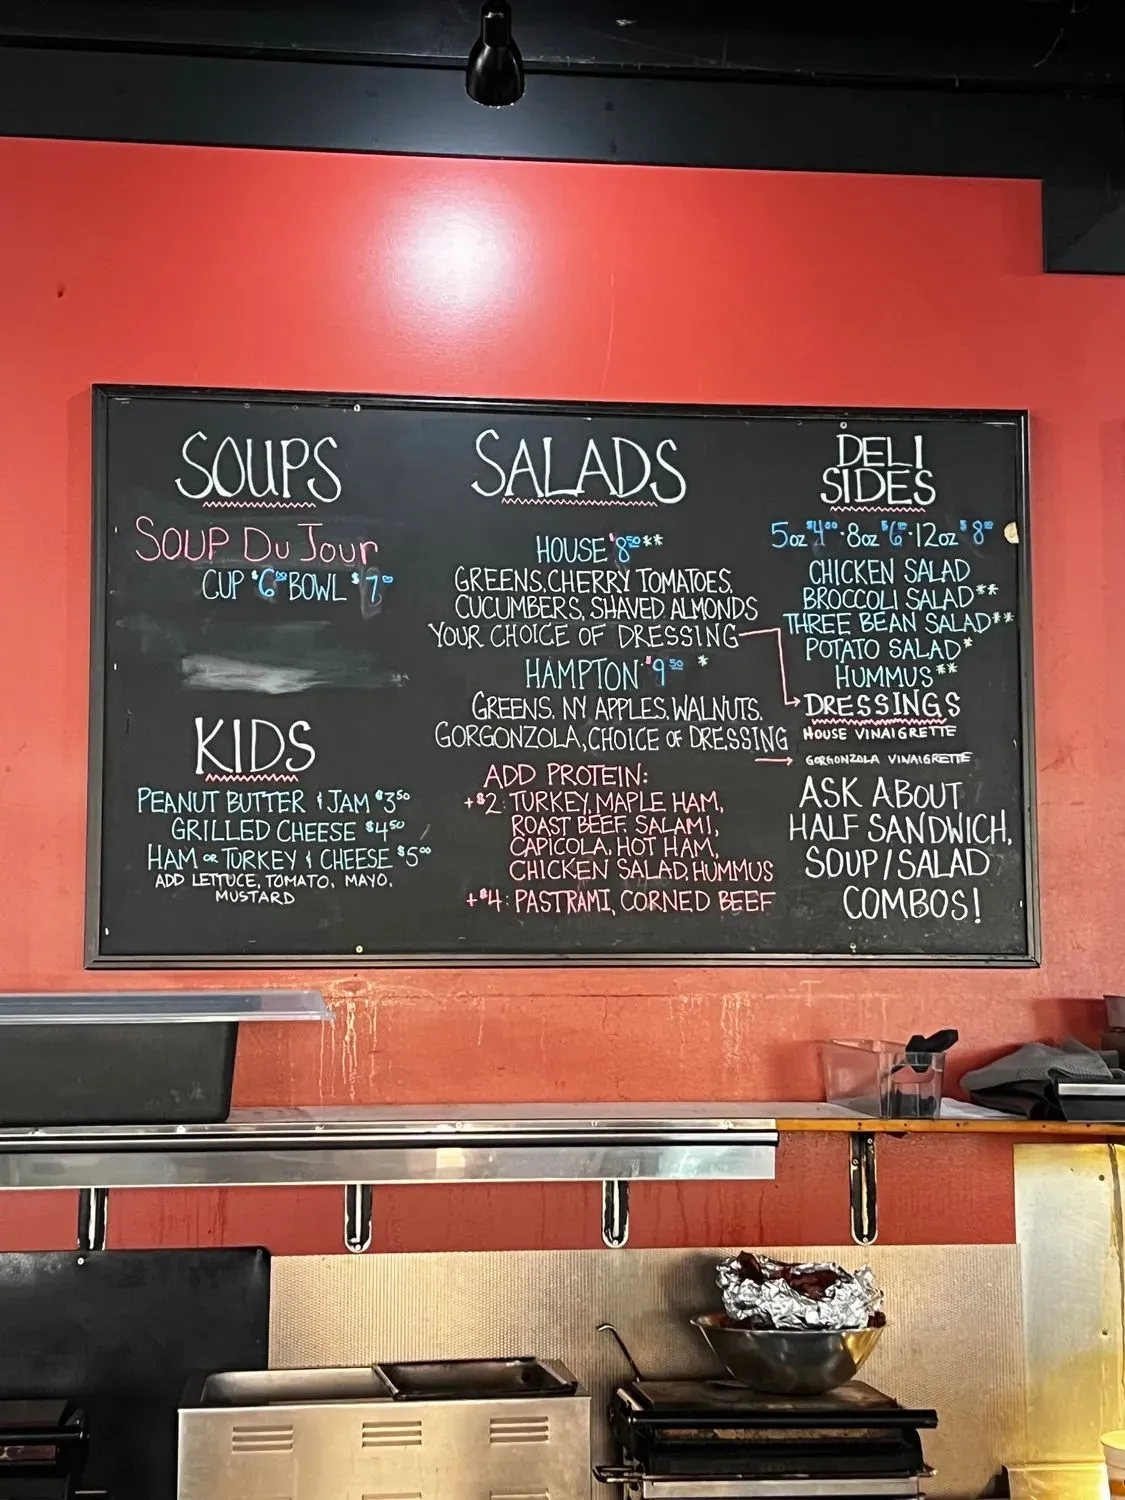 SOUPS
SOUP Du Jour
CUP $6.00 BOWL $7.00
KIDS
PEANUT BUTTER & JAM $3.50
GRILLED CHEESE $4.50
HAM OR TURKEY & CHEESE $5.00
ADD LETTUCE, TOMATO, MAYO,
MUSTARD
SALADS
HOUSE $8.50**
GREENS, CHERRY TOMATOES,
CUCUMBERS, SHAVED ALMONDS
YOUR CHOICE OF DRESSING
HAMPTON $9.50 *
GREENS, NY APPLES, WALNUTS,
GORGONZOLA, CHOICE OF DRESSING
ADD PROTEIN:
+$2: TURKEY, MAPLE HAM,
ROAST BEEF, SALAMI,
CAPICOLA, HOT HAM,
CHICKEN SALAD, HUMMUS
+$4: PASTRAMI, CORNED BEEF
DELI
SIDES
5oz $4.00 · 8oz $6.00 · 12oz $8.00
CHICKEN SALAD
BROCCOLI SALAD**
THREE BEAN SALAD**
POTATO SALAD*
HUMMUS**
DRESSINGS
HOUSE VINAIGRETTE
GORGONZOLA VINAIGRETTE
ASK ABOUT
HALF SANDWICH,
SOUP/SALAD
COMBOS!